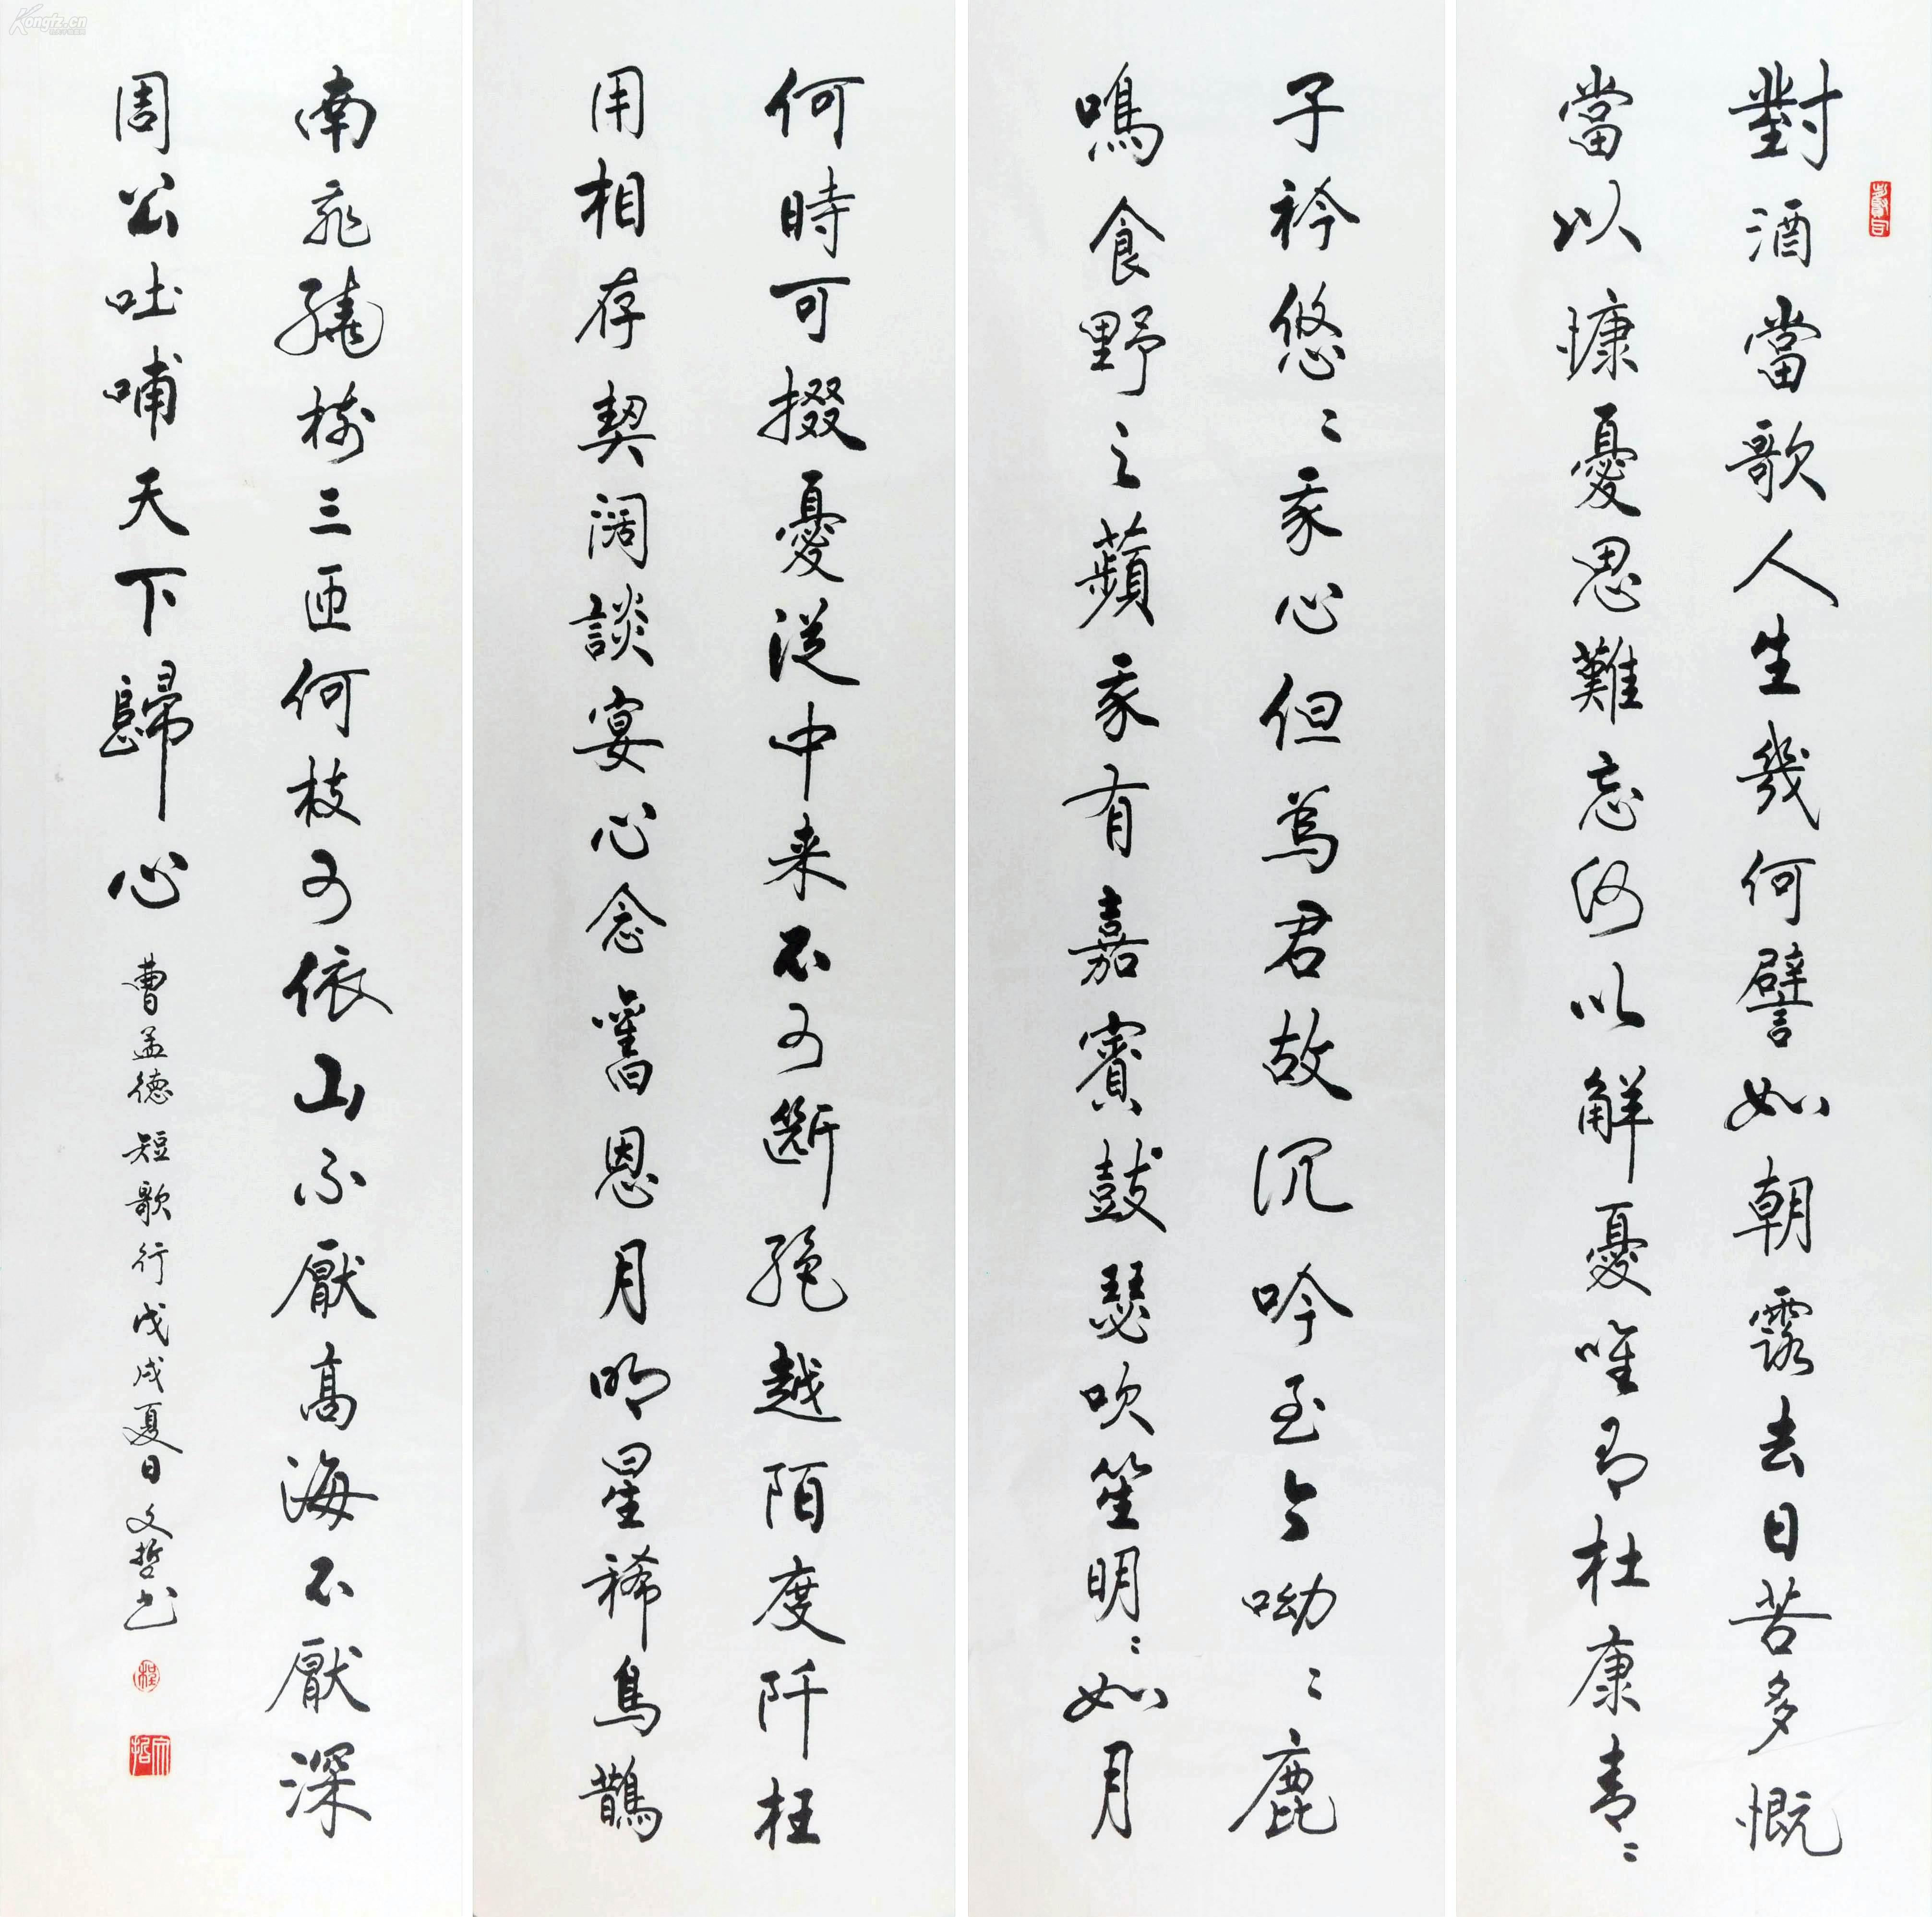 對酒當歌人生幾何譬如朝露去日苦多慨
當以慷憂思難忘何以解憂唯有杜康青〻
子衿悠〻我心但為君故沉吟至今呦〻鹿
鳴食野之蘋我有嘉賓鼓瑟吹笙明〻如月
何時可掇憂從中来不可斷絕越陌度阡枉
用相存契阔談宴心念舊恩月明星稀烏鵲
南飛繞樹三匝何枝可依山不厭高海不厭深
周公吐哺天下歸心
曹孟德短歌行戊戌夏日文哲书
Kongfz.cn